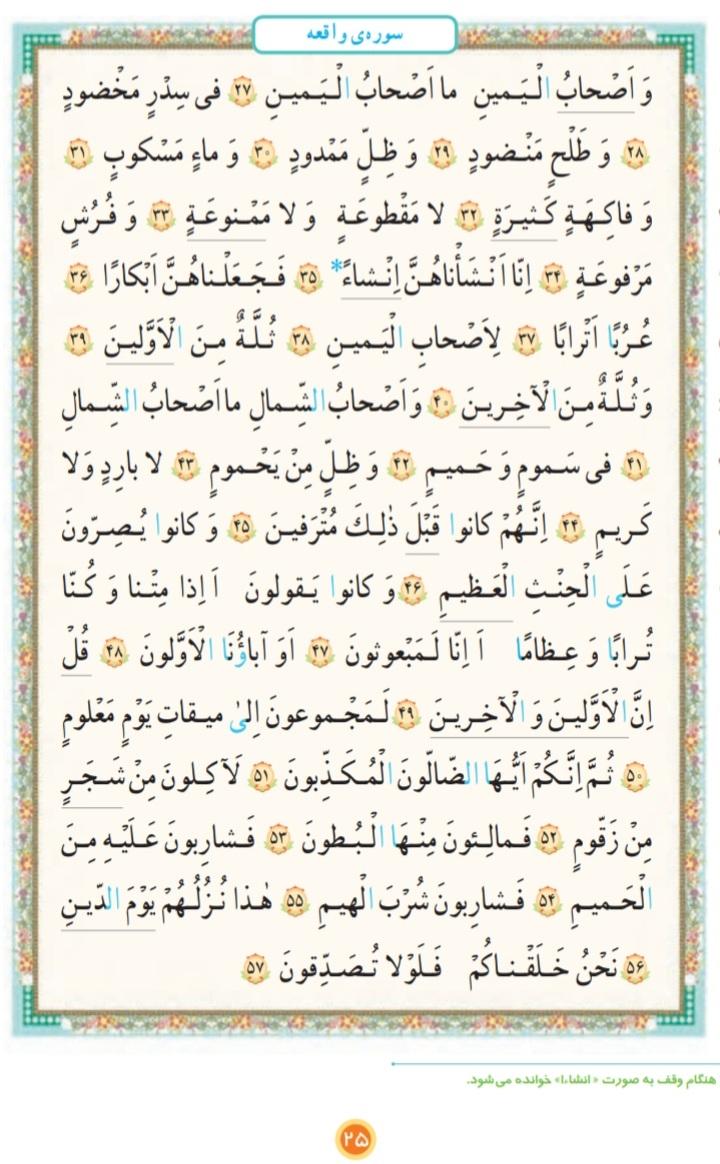 سوره‌ی واقعه
وَ اَصْحابُ الْیَمینِ ما اَصْحابُ الْیَمینِ ۲۷ فی سِدْرٍ مَخْضودٍ
۲۸ وَ طَلْحٍ مَنْضودٍ ۲۹ وَ ظِلٍّ مَمْدودٍ ۳۰ وَ ماءٍ مَسْکوبٍ ۳۱
وَ فاکِهَةٍ کَثیرَةٍ ۳۲ لا مَقْطوعَةٍ وَ لا مَمْنوعَةٍ ۳۳ وَ فُرُشٍ
مَرْفوعَةٍ ۳۴ اِنّا اَنْشَأْناهُنَّ اِنْشاءً* ۳۵ فَجَعَلْناهُنَّ اَبْکارًا ۳۶
عُرُبًا اَتْرابًا ۳۷ لِاَصْحابِ الْیَمینِ ۳۸ ثُلَّةٌ مِنَ الْاَوَّلینَ ۳۹
وَ ثُلَّةٌ مِنَ الْآخِرینَ ۴۰ وَ اَصْحابُ الشِّمالِ ما اَصْحابُ الشِّمالِ
۴۱ فی سَمومٍ وَ حَمیمٍ ۴۲ وَ ظِلٍّ مِنْ یَحْمومٍ ۴۳ لا بارِدٍ وَ لا
کَریمٍ ۴۴ اِنَّهُمْ کانوا قَبْلَ ذٰلِکَ مُتْرَفینَ ۴۵ وَ کانوا یُصِرّونَ
عَلَی الْحِنْثِ الْعَظیمِ ۴۶ وَ کانوا یَقولونَ اَ اِذا مِتْنا وَ کُنّا
تُرابًا وَ عِظامًا اَ اِنّا لَمَبْعوثونَ ۴۷ اَوَ آباؤُنَا الْاَوَّلونَ ۴۸ قُلْ
اِنَّ الْاَوَّلینَ وَ الْآخِرینَ ۴۹ لَمَجْموعونَ اِلیٰ میقاتِ یَوْمٍ مَعْلومٍ
۵۰ ثُمَّ اِنَّکُمْ اَیُّهَا الضّالّونَ الْمُکَذِّبونَ ۵۱ لَآکِلونَ مِنْ شَجَرٍ
مِنْ زَقّومٍ ۵۲ فَمالِئونَ مِنْهَا الْبُطونَ ۵۳ فَشارِبونَ عَلَیْهِ مِنَ
الْحَمیمِ ۵۴ فَشارِبونَ شُرْبَ الْهیمِ ۵۵ هٰذا نُزُلُهُمْ یَوْمَ الدّینِ
۵۶ نَحْنُ خَلَقْناکُمْ فَلَوْلا تُصَدِّقونَ ۵۷
هنگام وقف به صورت «انشاءا» خوانده می‌شود.
۲۵